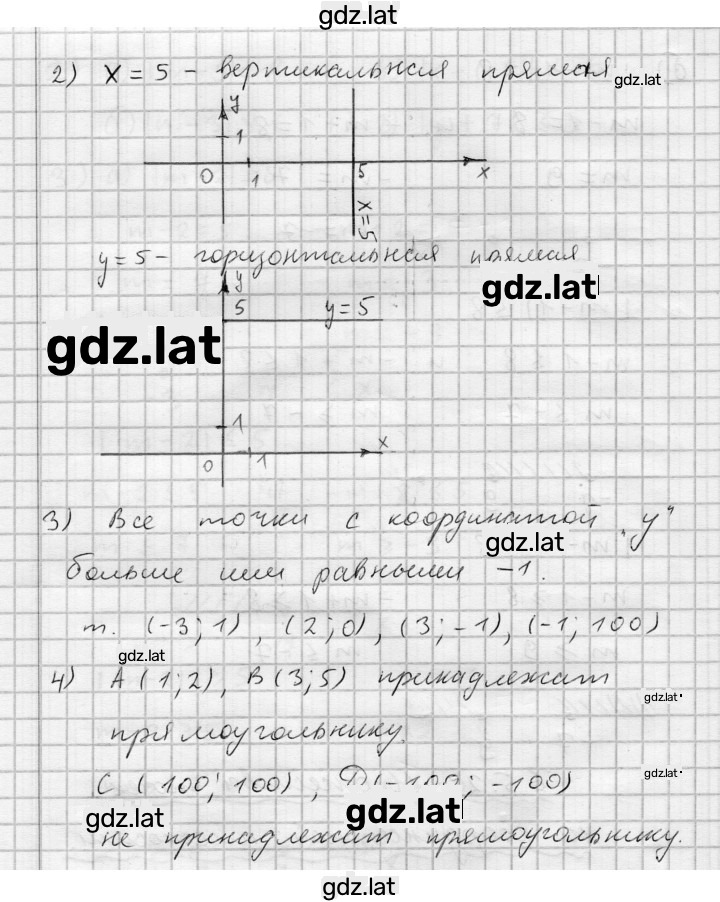 gdz.lat
2) x = 5 - вертикальная прямая
gdz.lat
y
1
0
1
5
x
x=5
y = 5 - горизонтальная прямая
gdz.lat
y
5
y = 5
gdz.lat
1
x
0
1
3) Все точки с координатой „y"
gdz.lat
больше или равными -1.
т. (-3; 1), (2; 0), (3; -1), (-1; 100)
gdz.lat
4) A (1; 2), B (3; 5) принадлежат
gdz.lat
прямоугольнику.
C (100; 100), D (-100; -100)
gdz.lat
gdz.lat
gdz.lat
не принадлежат прямоугольнику.
gdz.lat